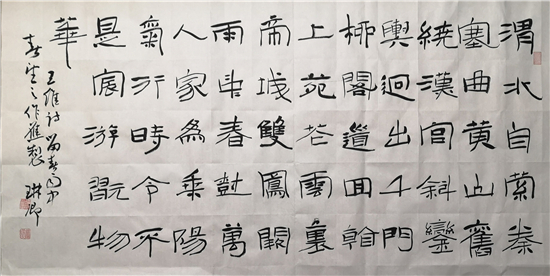 渭水自縈秦
塞曲黃山舊
繞漢宮斜鑾
輿迥出千門
柳閣道回看
上苑花雲裏
帝城雙鳳闕
雨中春樹萬
人家為乘陽
氣行時令不
是宸游翫物
華
王維詩留春雨中
春望之作應製